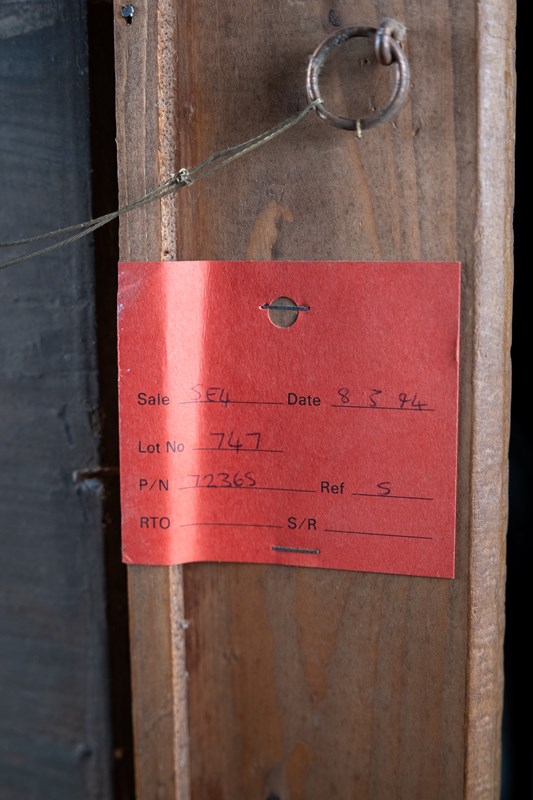 Sale SE4 Date 8 3 94
Lot No 747
P/N 72365 Ref S
RTO S/R